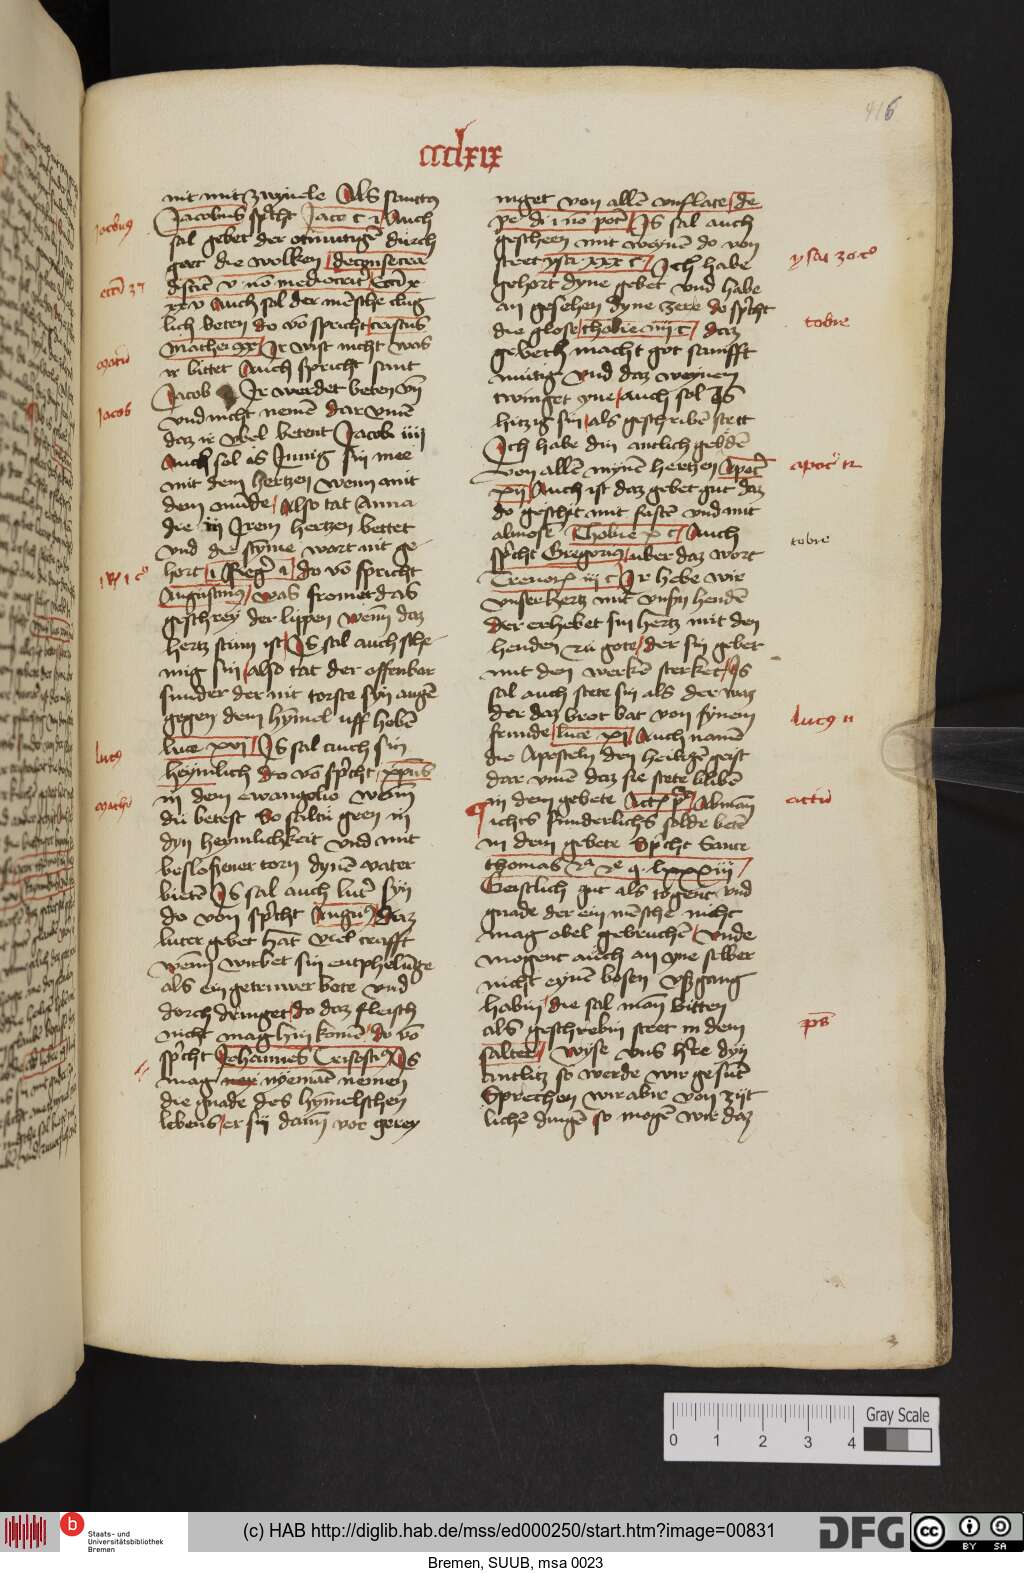 416
ccclxix
nit mit zwiuele Als sanctus
Jacobus spricht Jaco c i Auch
sal gebet der otmutigen durch
geet die wolken de consecra
distinc v non mediocriter Ecci x
xxv Auch sol der mensche clug
lich beten do von spricht cristus
Mathei xx Ir wist nicht was
ir bittet Auch spricht sant
Jacob Ir werdet beten vn
vnd nicht nemen dar vmme
daz ir vbel betent Jacobi iiij
Auch sol is Jnnig sin me
mit dem hertzen wenn mit
dem munde Also tat Anna
die in Jrem hertzen bettet
vnd die stymme wart nit ge
hort i Reg i do von spricht
Augustinus was fromet das
geschrey der lippen wenn daz
hertz stum ist Is sal auch sche
mig sin also tat der offenbar
sunder der nit torste syn augen
gegen dem hymmel uff heben
luce xvi Is sal auch sin
heymlich do von spricht xpus
in dem ewangelio wenn
du betest so saltu geen in
dyn heymlichkeit vnd mit
beslossener torn dynen vater
bieten Is sal auch luter syn
do von spricht Augus Daz
luter gebet hat vil crafft
wenn wirbet sin entphelunge
als ein getruwer bote vnd
dorch dringet do daz fleisch
nicht mag hin komen do von
spricht Johannes Crisostimus Is
mag nymant nemen
die gnade des hymmelschen
lebens er sy dann vor gerey
niget von allen vnflate de
pe di i non pote Is sal auch
gescheen mit weynen do von
steet ysa xxx c Ich habe
gehort dyne gebet vnd habe
an gesehen dyne zere do spricht
die glose thobie iiij c daz
gebeth macht got samfft
mutig vnd daz weynen
twinget yne auch sol is
hitzig sin als geschriben stett
Ich habe din antlich gebeden
von allen mynen hertzen Apoc
xij Auch ist daz gebet gut daz
do geschit mit fasten vnd mit
almosen Thobie x c Auch
spricht Gregorius uber daz wort
Trenorum iij c Ir hebe wir
vnser hertz mit vnsern henden
der erhebet sin hertz mit den
henden zu gote der sin gebet
mit den wercken sterket Is
sal auch stete sin als der waz
der daz brot bat von synem
frunde luce xi Auch namen
die Aposteln den heiligen geist
dar vmme daz sie stete bliben
in dem gebete Act pm Abman
ichts sunderlichs solde beten
in dem gebete Spricht Sanct
thomas q lxxxiij
Geistlich gut als togent vnd
gnade der ein mensche nicht
mag obel gebruchen vnde
mogent auch an yne selber
nicht eynen bosen vßgang
habin die sal man bitten
als geschrebin steet in dem
salter Wyse vns herre dyn
antlitz so werde wir gesunt
Sprechen wir abir von zijt
lichen dingen so mogen wir daz
Jacobus
Jacob
lucas
mathei
tobie
tobie
lucas 11
actuum
ps
Gray Scale
0 1 2 3 4
Staats- und
Universitätsbibliothek
Bremen
(c) HAB http://diglib.hab.de/mss/ed000250/start.htm?image=00831
DFG
cc BY SA
Bremen, SUUB, msa 0023